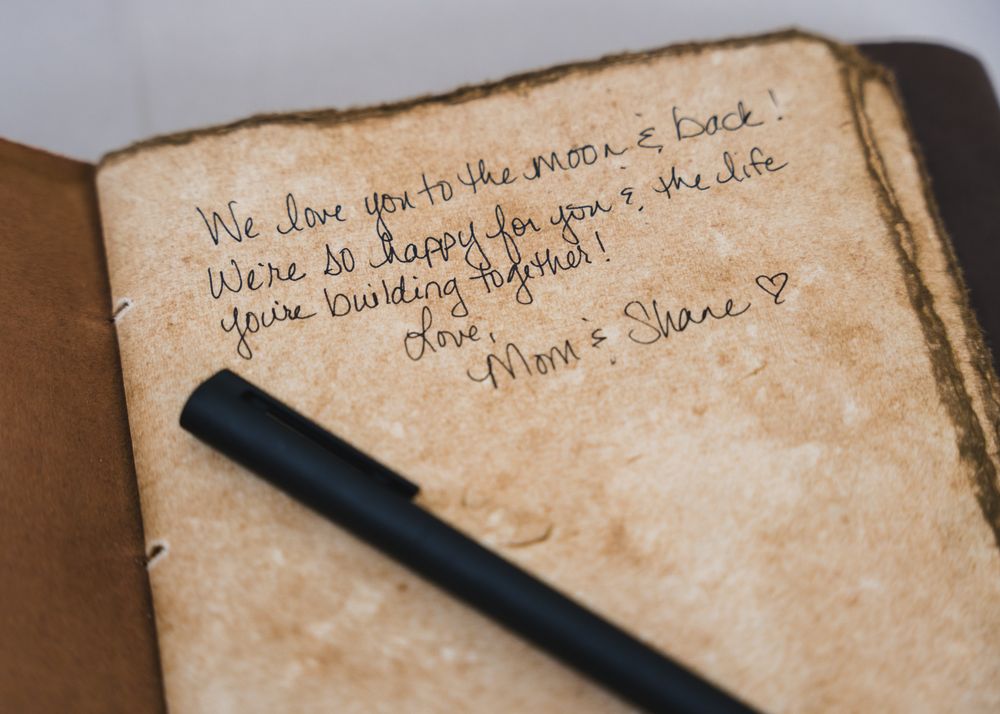 We love you to the moon & back!
We're so happy for you & the life
you're building together!
Love,
Mom & Shane ♡